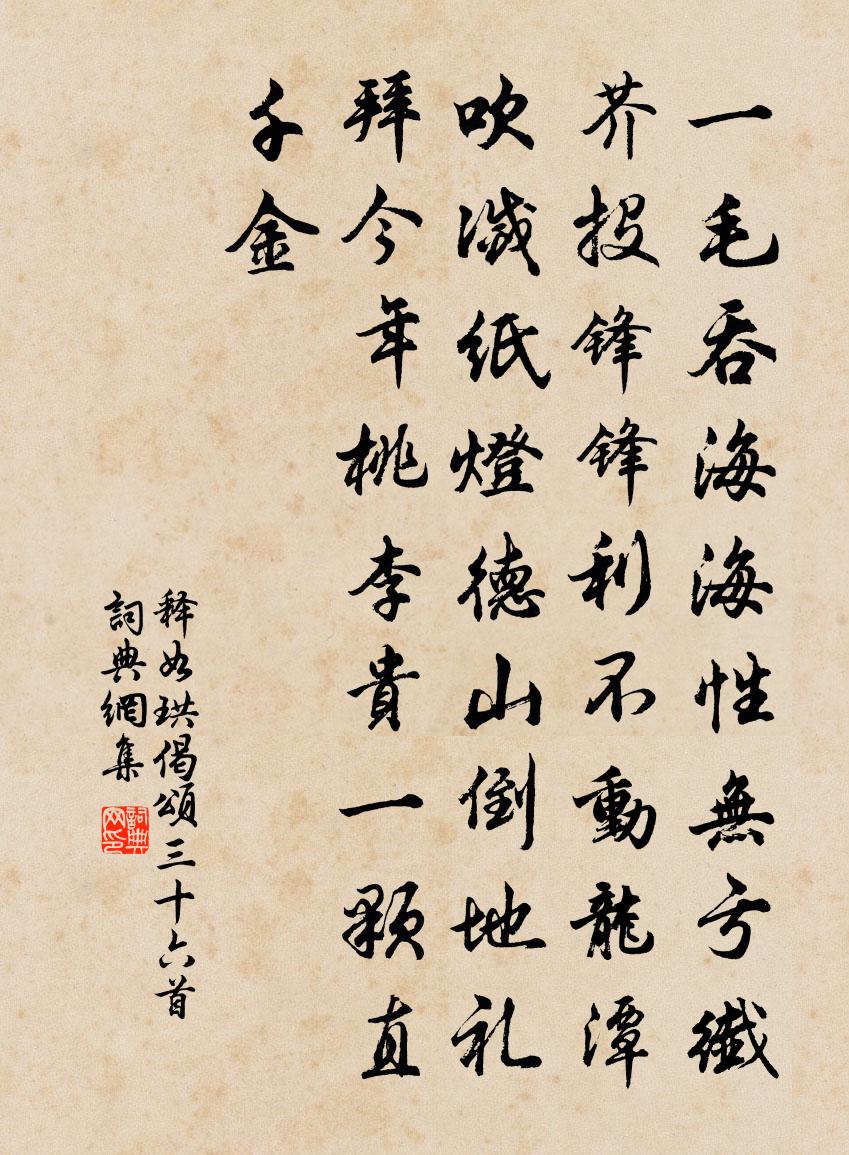 一毛吞海海性無亏纖
芥投锋锋利不動龍潭
吹滅紙燈德山倒地礼
拜今年桃李貴一顆直
千金
释如珙偈頌三十六首
詞典網集
詞典网印